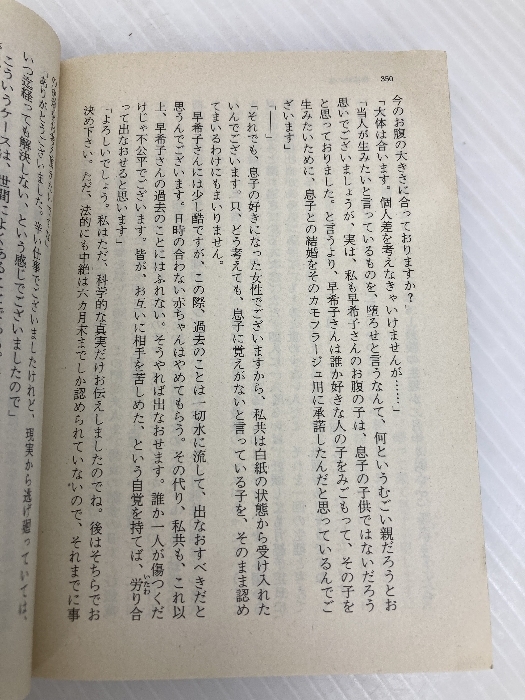 350
今のお腹の大きさに合っておりますか？」
「大体は合います。個人差を考えなきゃいけませんが……」
「当人が生みたいと言っているものを、堕ろせと言うなんて、何というむごい親だろうとお
思いでございましょうが、実は、私も早希子さんのお腹の子は、息子の子供ではないだろう
と思っておりました。と言うより、早希子さんは誰か好きな人の子をみごもって、その子を
生みたいために、息子との結婚をそのカモフラージュ用に承諾したんだと思っているんでご
ざいます」
「――」
「それでも、息子の好きになった女性でございますから、私共は白紙の状態から受け入れた
いんでございます。只、どう考えても、息子に覚えがないと言っている子を、そのまま認め
てまいるわけにもまいりません。
思うんでございます。日時の合わない赤ちゃんはやめてもらう。その代り、私共も、これ以
早希子さんには少し酷ですが、この際、過去のことは一切水に流して、出なおすべきだと
上、早希子さんの過去のことにはふれない。そうやれば出なおせます。誰か一人が傷つくだ
けじゃ不公平でございます。皆が、お互いに相手を苦しめた、という自覚を持てば、労り合
いたわ
って出なおせると思います」
「よろしいでしょう。私はただ、科学的な真実だけお伝えしましたのでね。後はそちらでお
決め下さい。ただ、法的にも中絶は六カ月末までしか認められていないので、それまでに事
ありがとうございました。辛い仕事でございましたけれど、現実から逃げ廻っていては、
いつ迄経っても解決しない、という感じでございましたので」
こういうケースは、世間によくあることでしょ